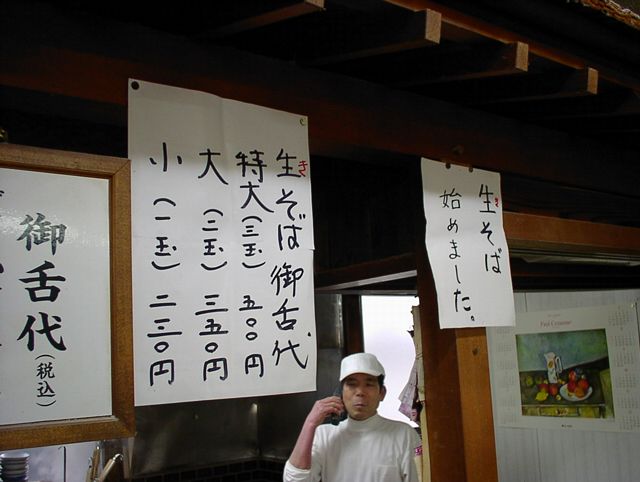 生そば
始めました。
生そば 御舌代
特大(三玉) 五〇〇円
大 (二玉) 三五〇円
小 (一玉) 二三〇円
御舌代(税込)
Paul Cezanne